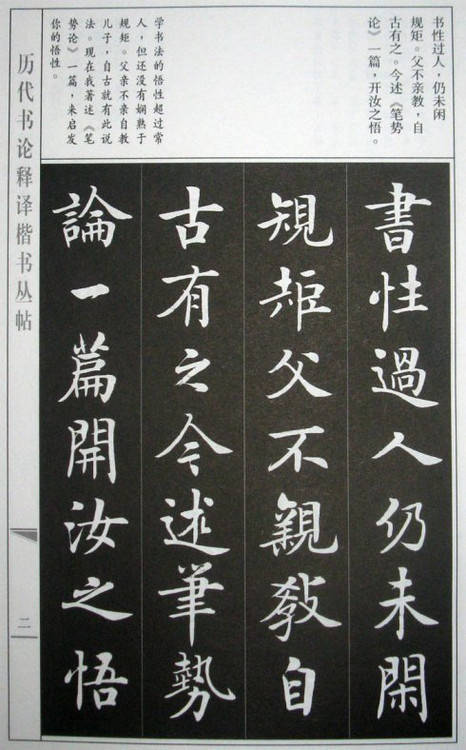 书性过人，仍未闲
规矩。父不亲教，自
古有之。今述《笔势
论》一篇，开汝之悟。
学书法的悟性超过常
人，但还没有娴熟于
规矩。父亲不亲自教
儿子，自古就有此说
法。现在我著述《笔
势论》一篇，来启发
你的悟性。
書性過人仍未閑
規矩父不親教自
古有之今述筆勢
論一篇開汝之悟
历代书论释译楷书丛帖
二